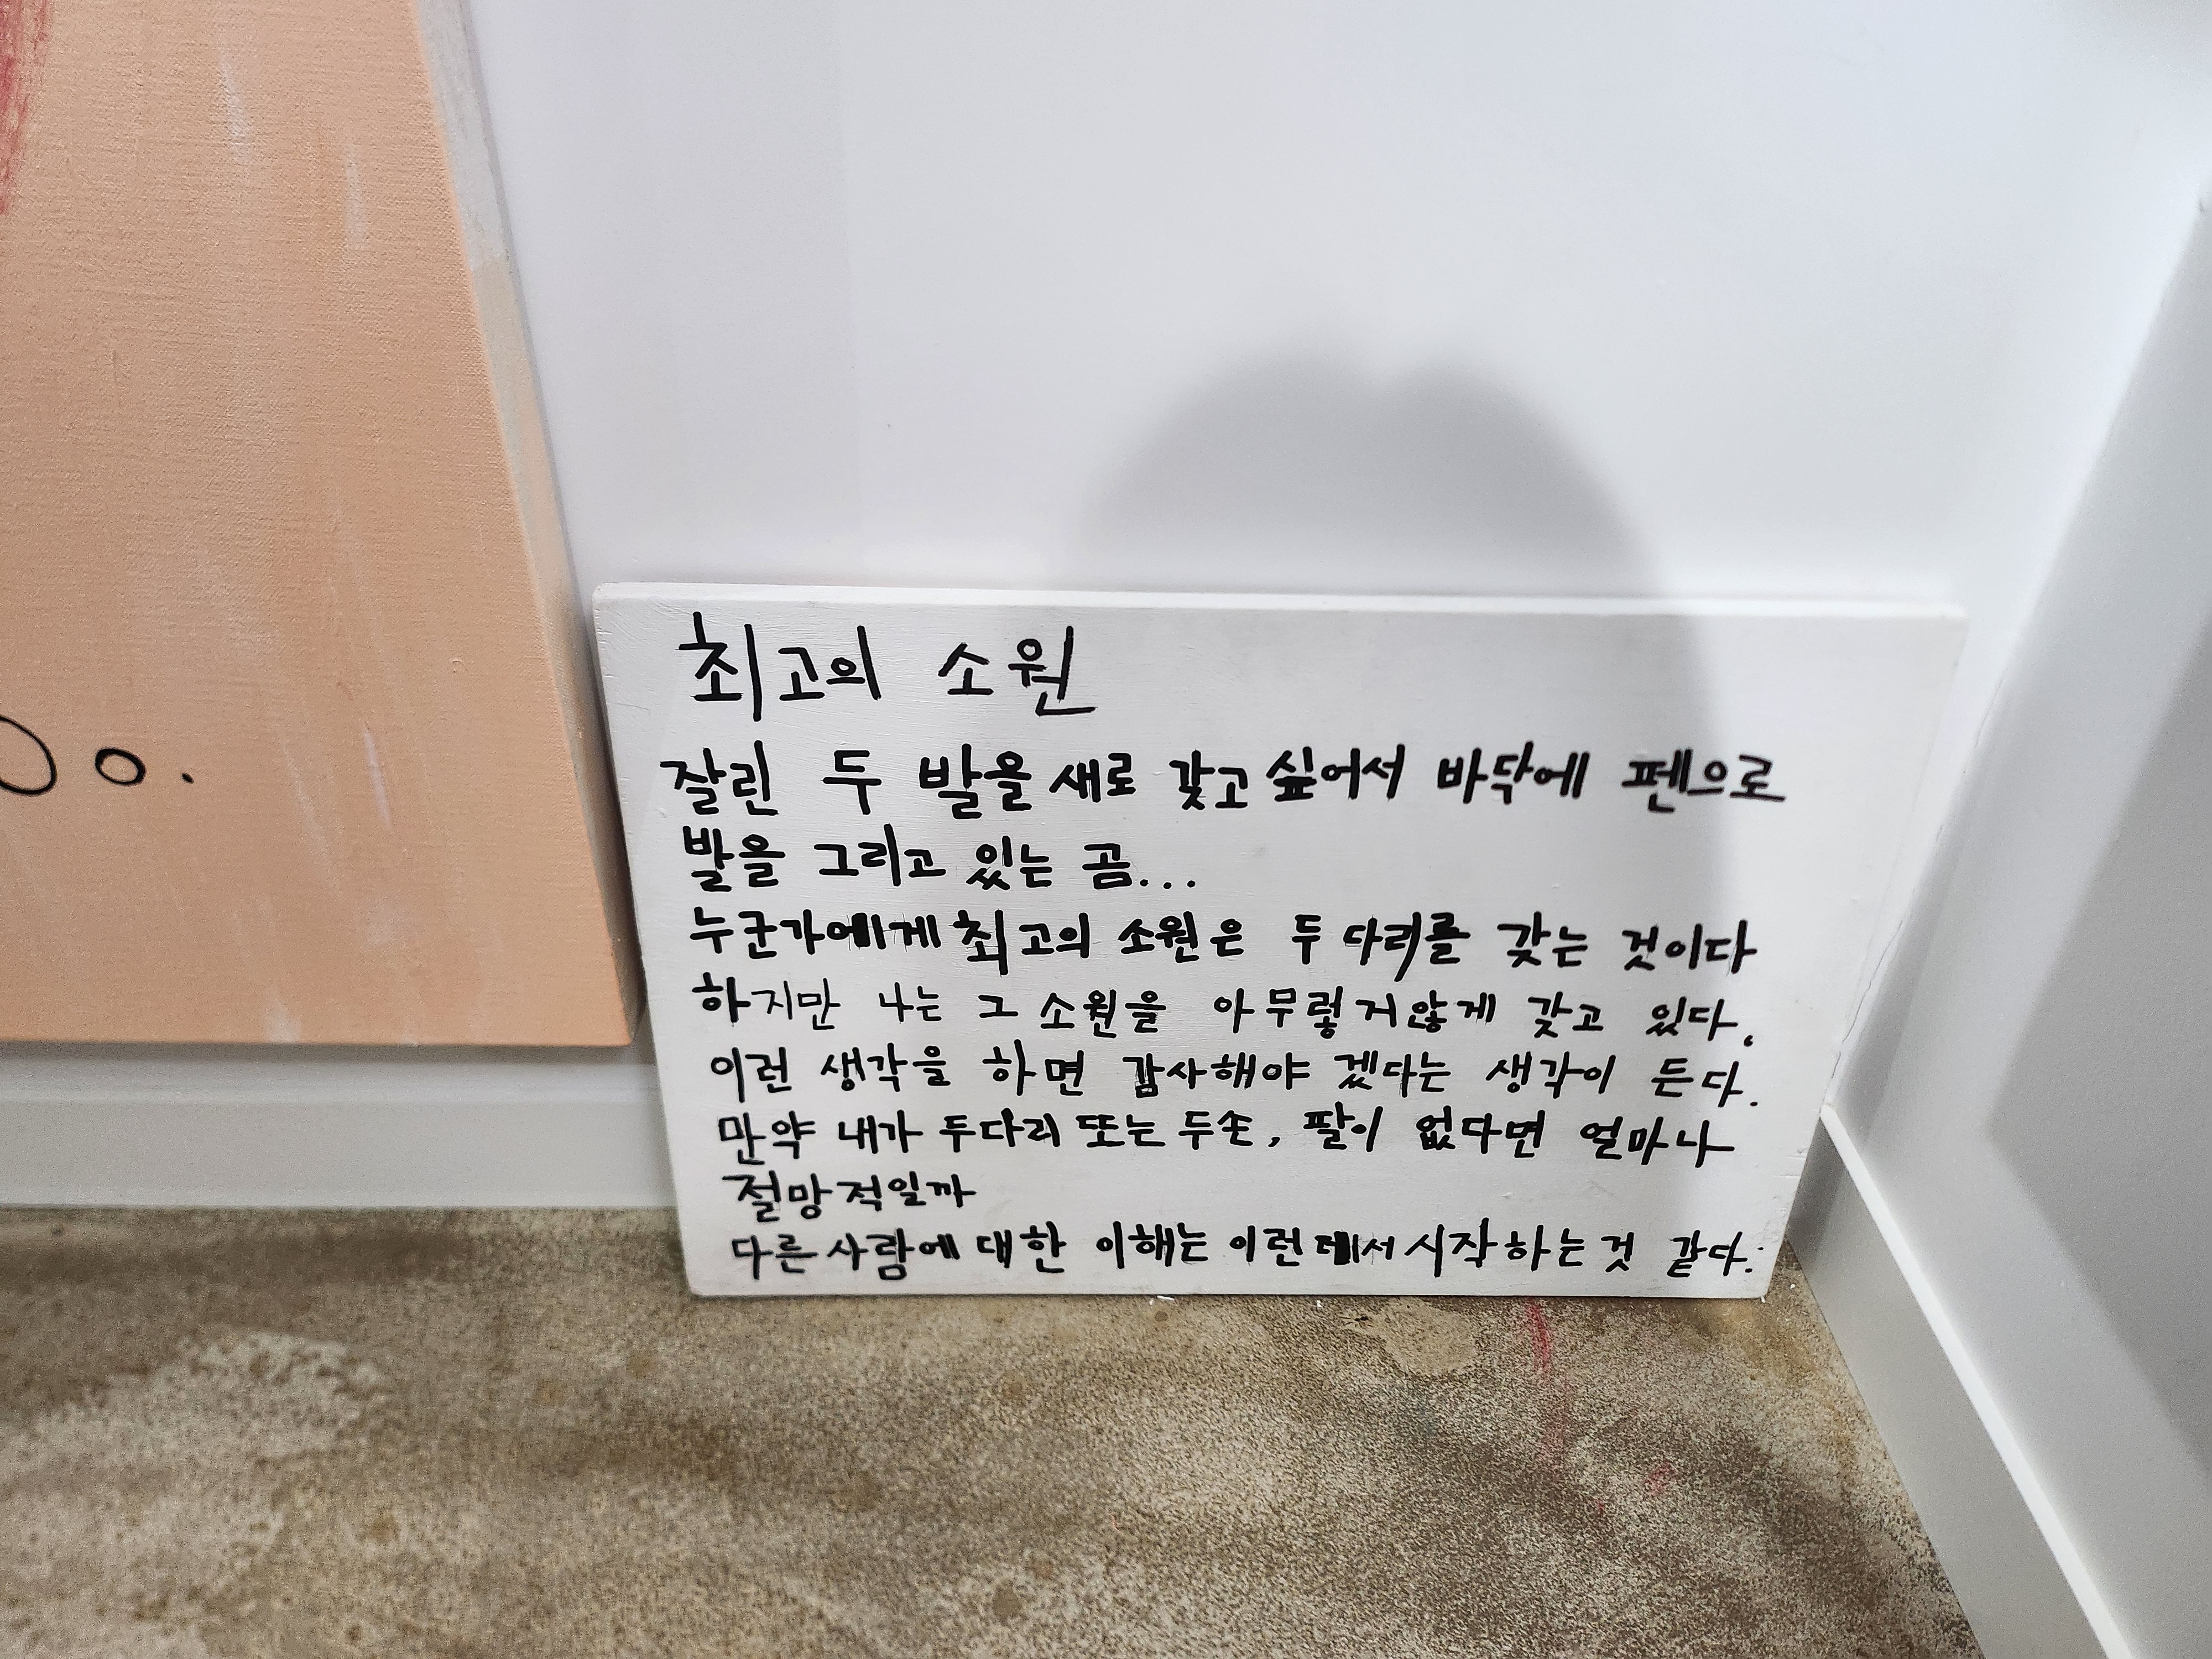 최고의 소원
잘린 두 발을 새로 갖고 싶어서 바닥에 펜으로
발을 그리고 있는 곰...
누군가에게 최고의 소원은 두 다리를 갖는 것이다
하지만 나는 그 소원을 아무렇지않게 갖고 있다.
이런 생각을 하면 감사해야 겠다는 생각이 든다.
만약 내가 두다리 또는 두손, 팔이 없다면 얼마나
절망적일까
다른 사람에 대한 이해는 이런데서 시작하는 것 같다.